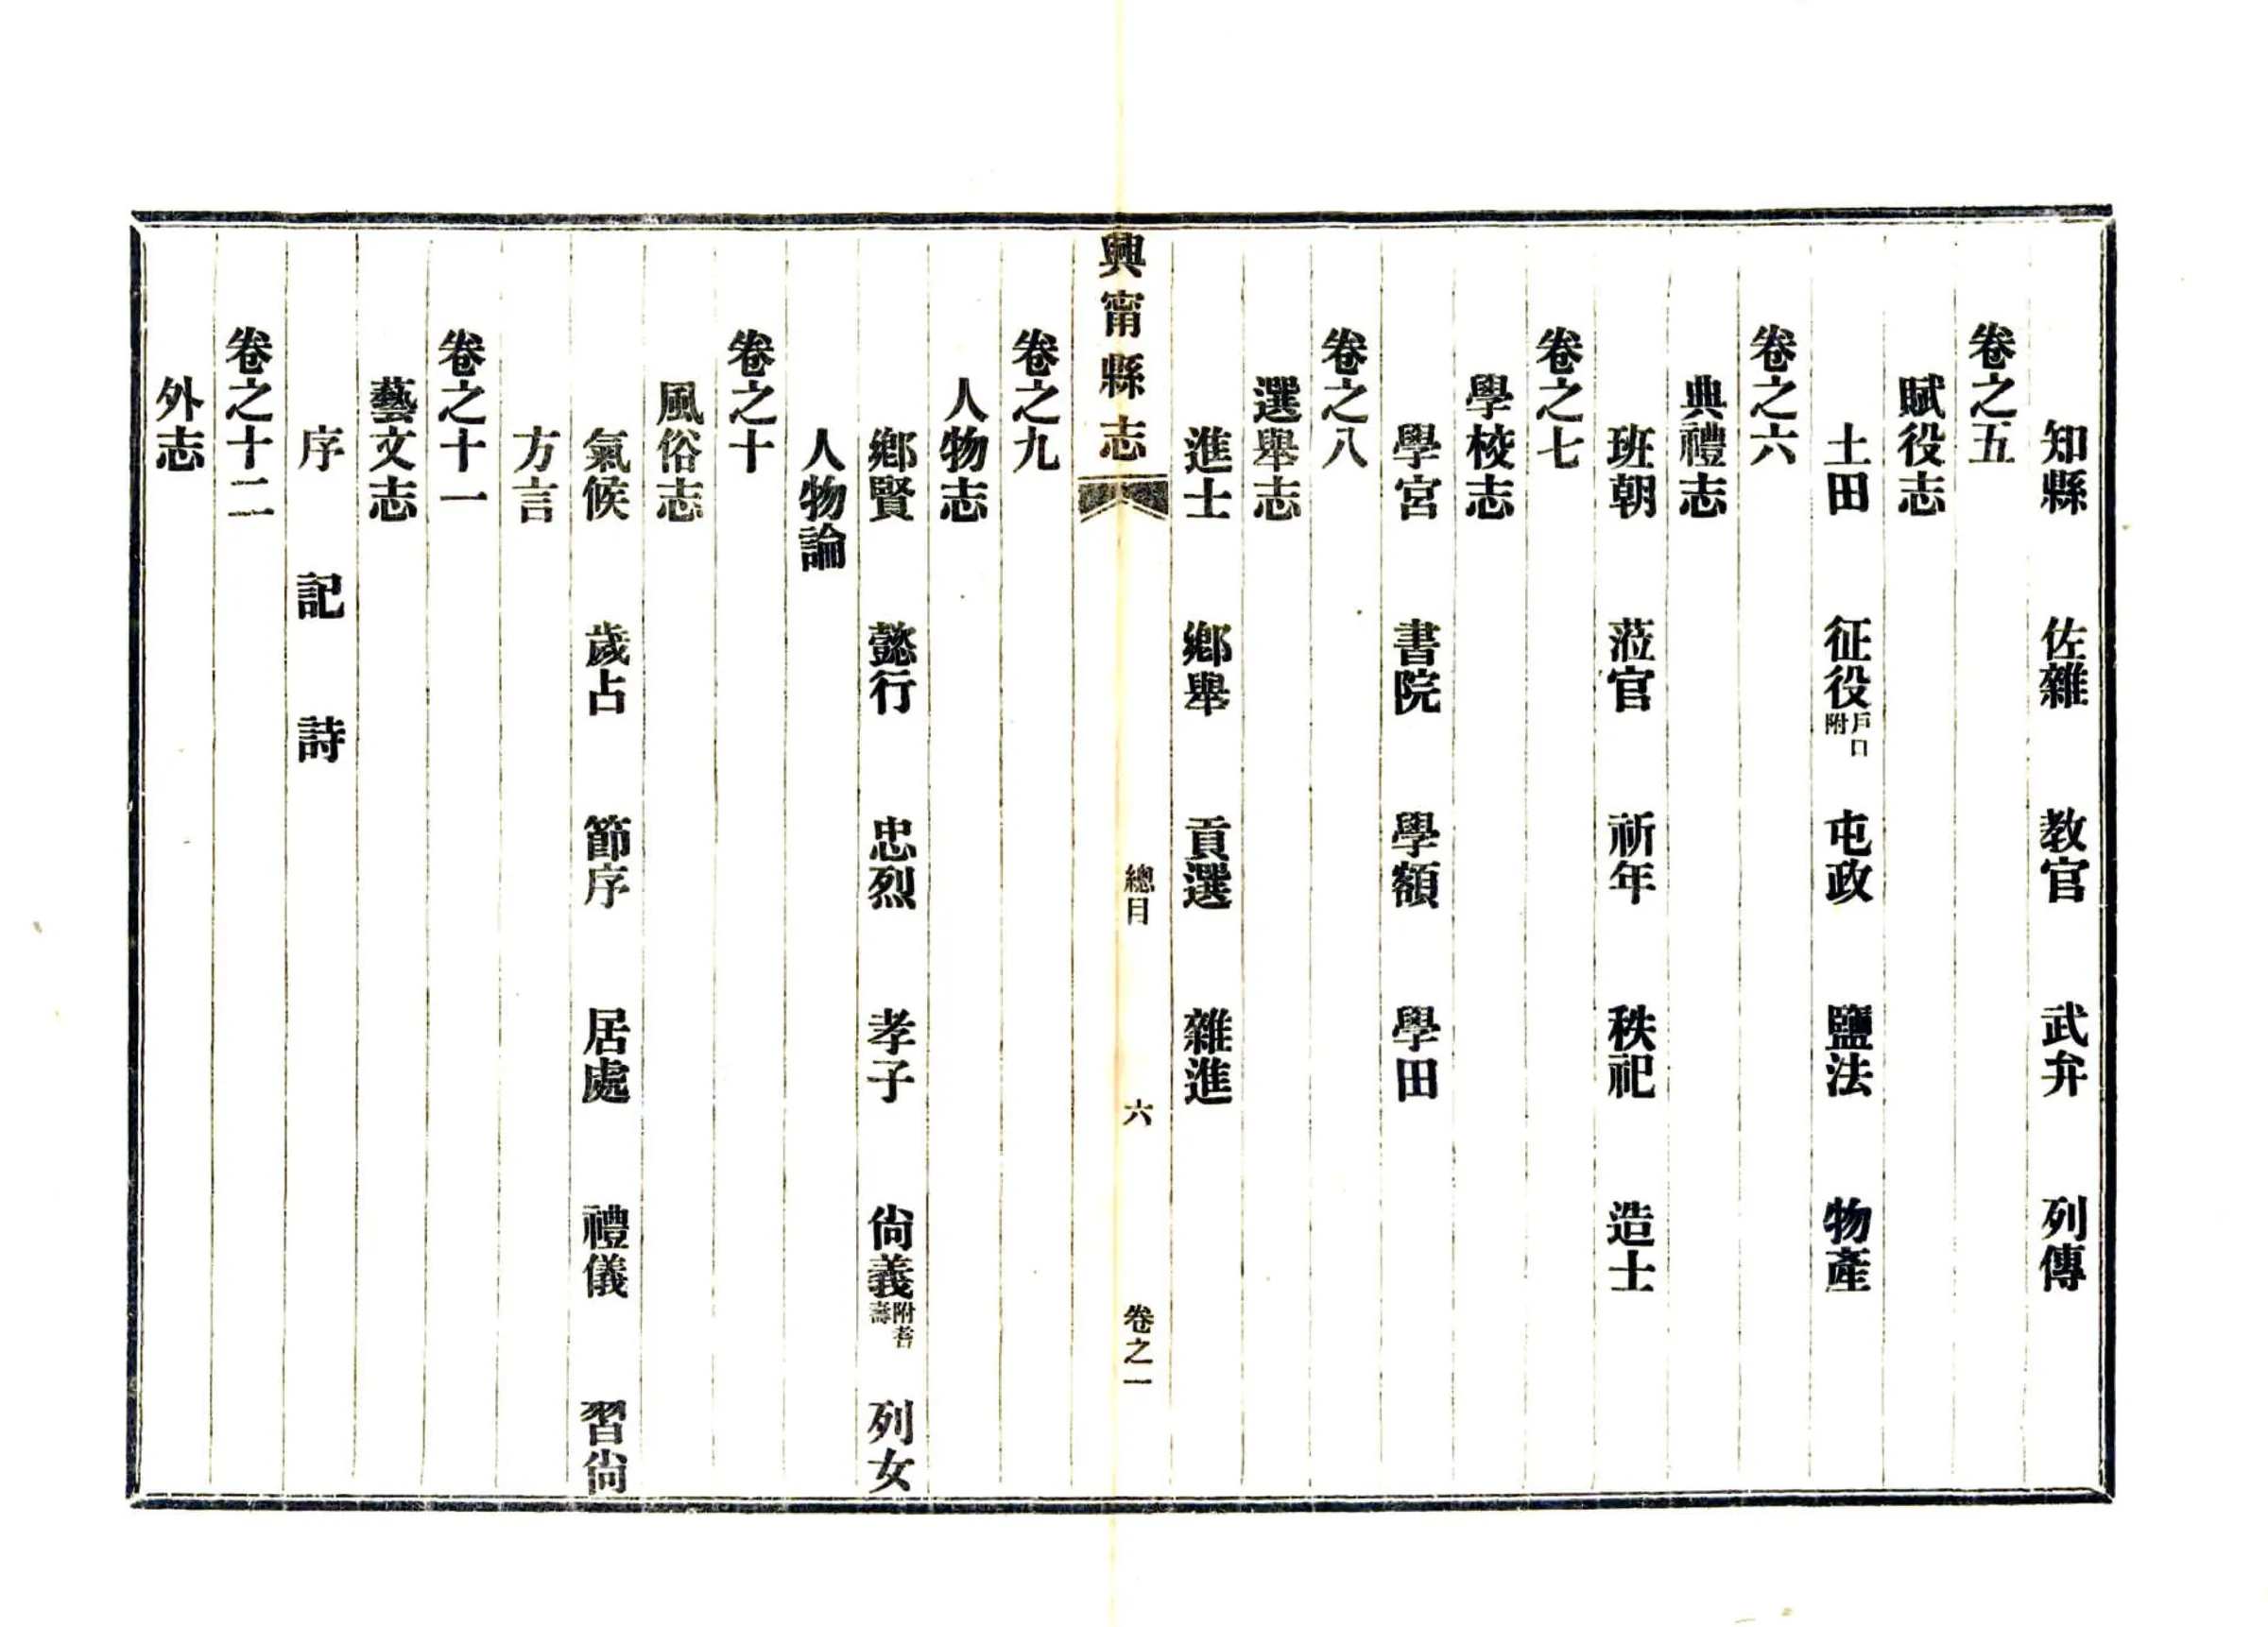 知縣　佐雜　教官　武弁　列傳
卷之五
賦役志
土田　征役戶口附　屯政　鹽法　物產
卷之六
典禮志
班朝　蒞官　祈年　秩祀　造士
卷之七
學校志
學宮　書院　學額　學田
卷之八
選舉志
進士　鄉舉　貢選　雜進
興甯縣志　總目　六　卷之一
卷之九
人物志
鄉賢　懿行　忠烈　孝子　尙義附耆壽　列女
人物論
卷之十
風俗志
氣候　歲占　節序　居處　禮儀　習尙
方言
卷之十一
藝文志
序　記　詩
卷之十二
外志